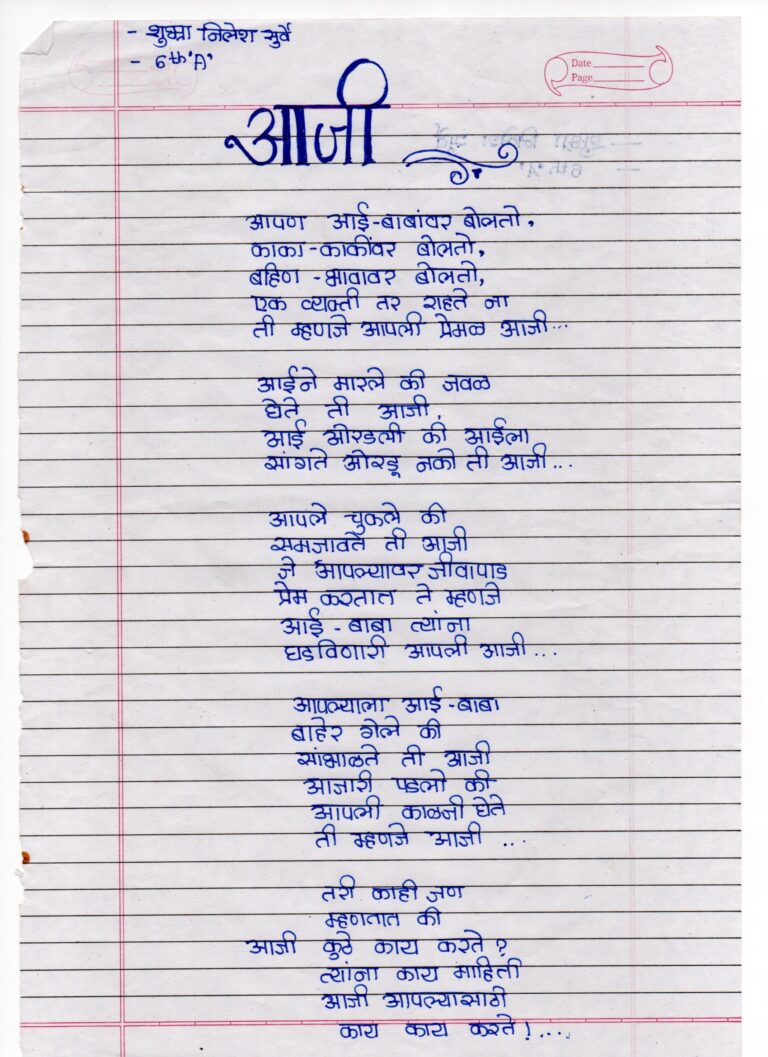 - शुभ्रा निलेश सुर्वे
- 6th 'A'
Date
Page
आजी
आपण आई-बाबांवर बोलतो,
काका-काकींवर बोलतो,
बहिण-भावावर बोलतो,
एक व्यक्ती तर राहते ना
ती म्हणजे आपली प्रेमळ आजी...
आईने मारले की जवळ
घेते ती आजी,
आई ओरडली की आईला
सांगते ओरडू नको ती आजी...
आपले चुकले की
समजावते ती आजी
जे आपल्यावर जीवापाड
प्रेम करतात ते म्हणजे
आई - बाबा त्यांना
घडविणारी आपली आजी...
आपल्याला आई-बाबा
बाहेर गेले की
सांभाळते ती आजी
आजारी पडलो की
आपली काळजी घेते
ती म्हणजे आजी ...
तरी काही जण
म्हणतात की
आजी कुठे काय करते?
त्यांना काय माहिती
आजी आपल्यासाठी
काय काय करते!....